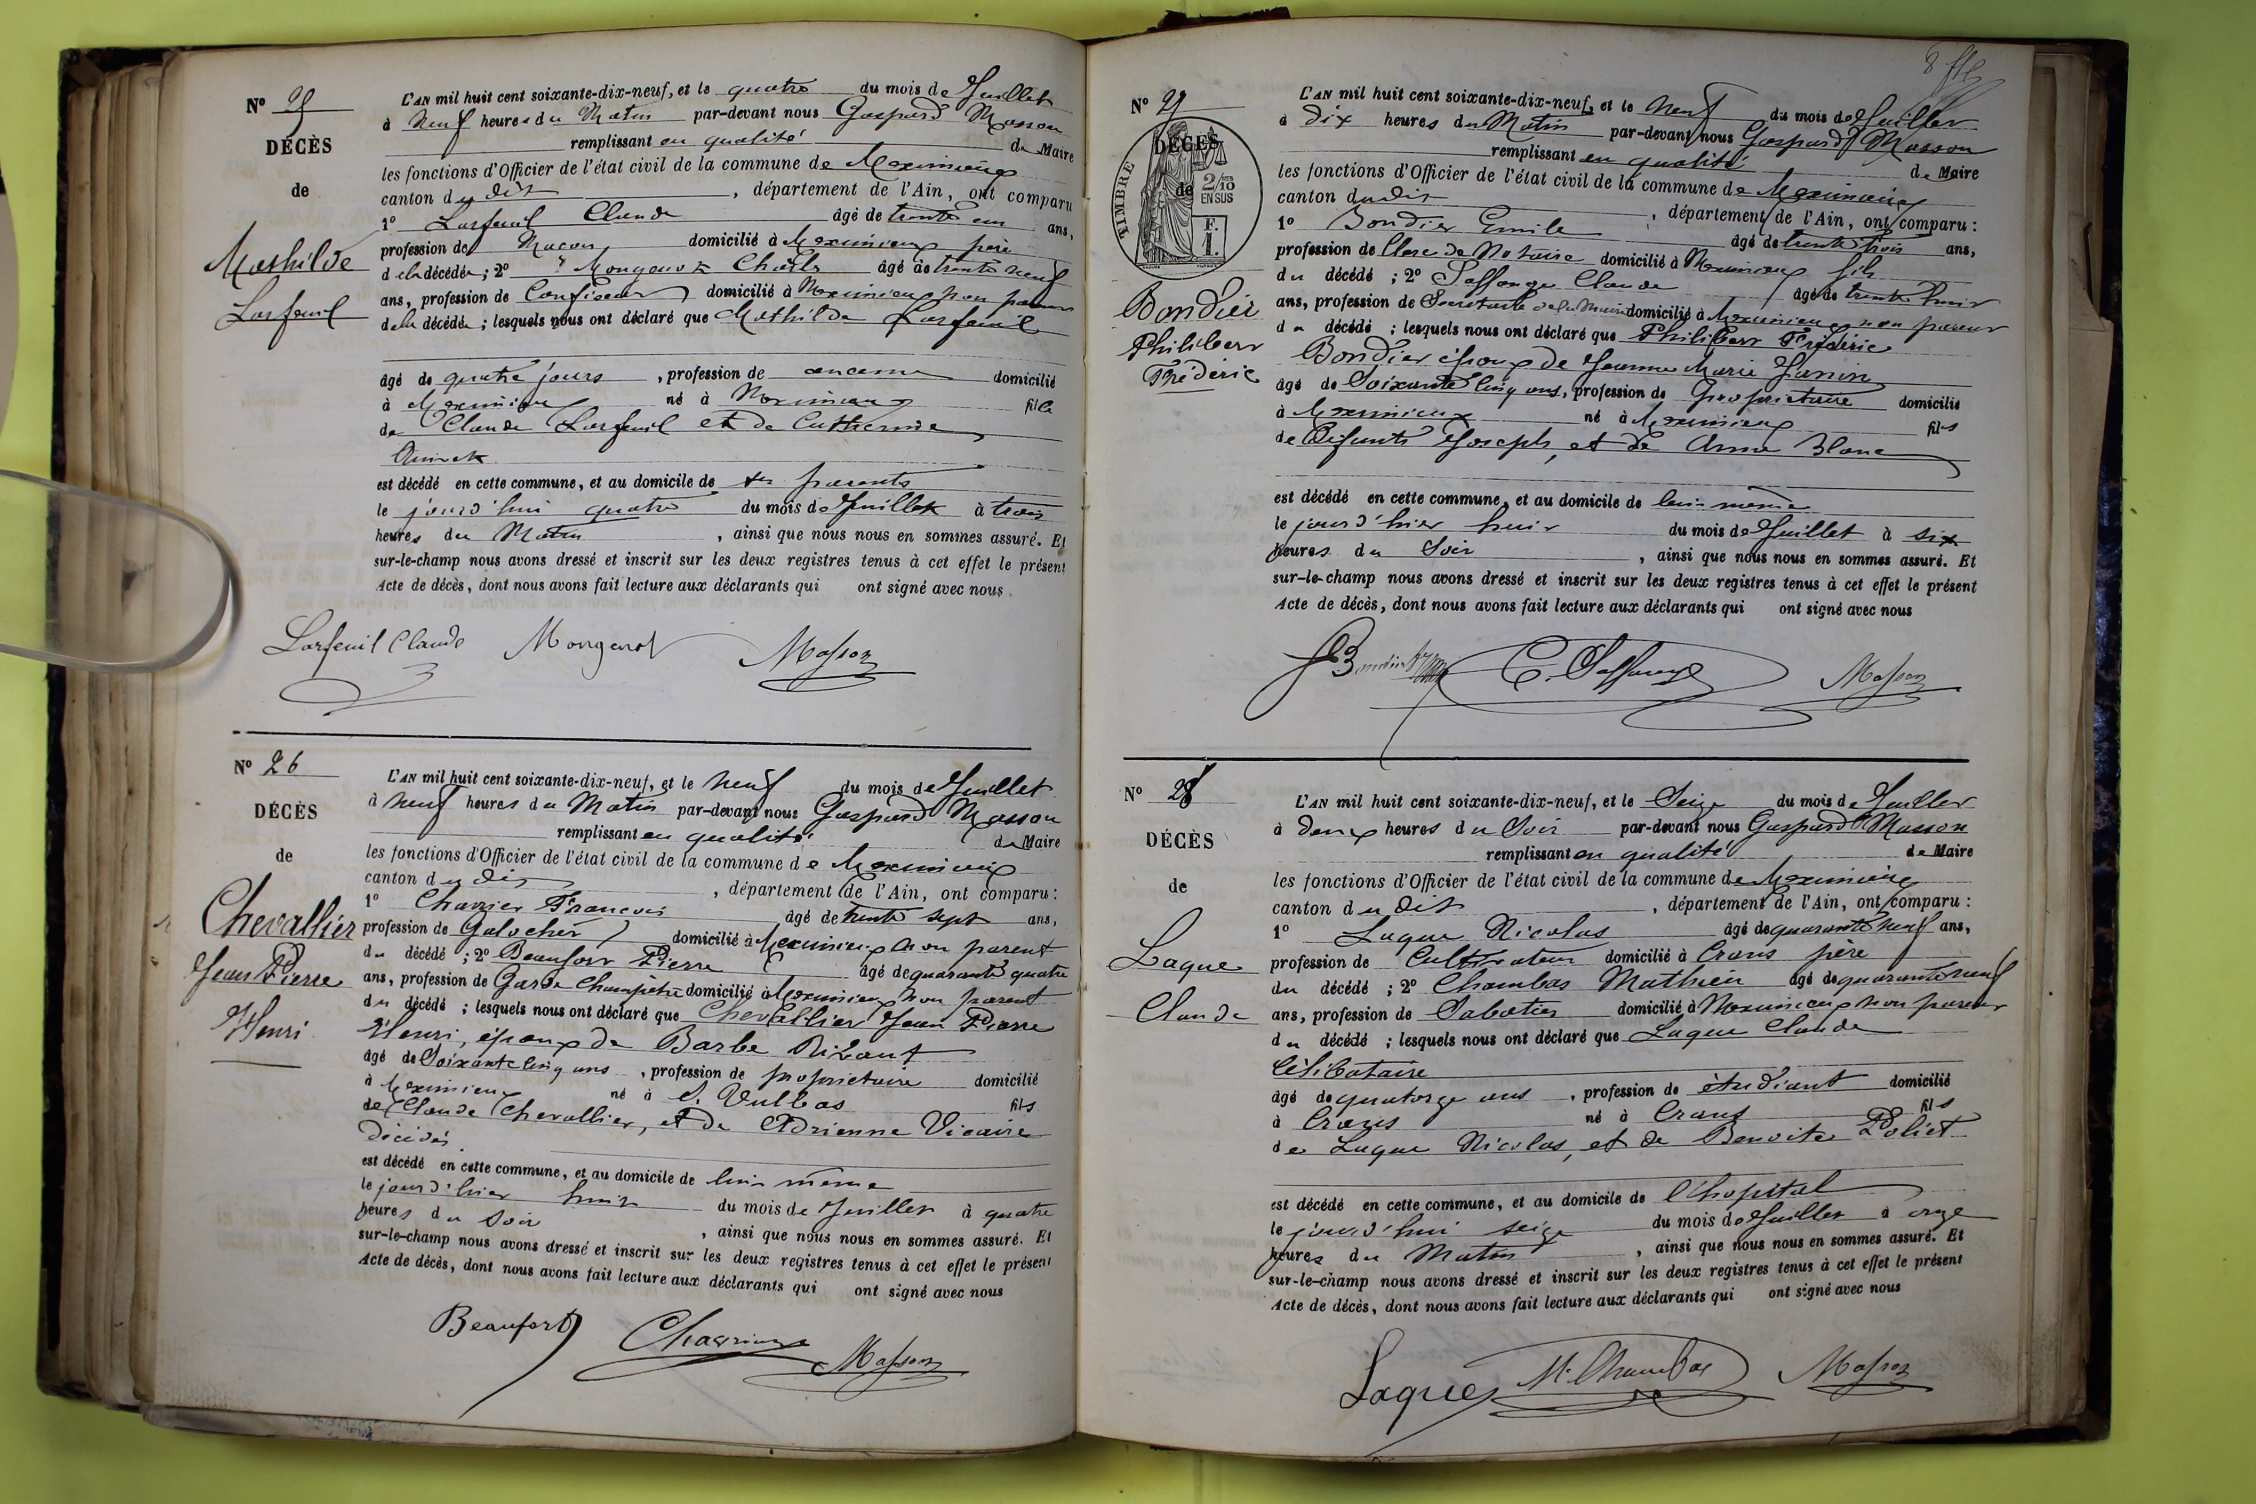 N° 25
DÉCÈS
de
Mathilde
Lorfeuil
L'AN mil huit cent soixante-dix-neuf, et le quatre du mois de Juillet
à neuf heures du Matin par-devant nous Gaspard Masson
remplissant en qualité de Maire
les fonctions d'Officier de l'état civil de la commune de Meximieux
canton du dit, département de l'Ain, ont comparu
1° Lorfeuil Claude âgé de trente un ans,
profession de Macon domicilié à Meximieux père
de la décédée ; 2° Mongenot Charles âgé de trente neuf
ans, profession de Confiseur domicilié à Meximieux non parent
de la décédée ; lesquels nous ont déclaré que Mathilde Lorfeuil
âgé de quatre jours, profession de aucune domicilié
à Meximieux né à Meximieux fille
de Claude Lorfeuil et de Catherine
est décédé en cette commune, et au domicile de ses parents
le jourd'hui quatre du mois de Juillet à trois
heures du Matin, ainsi que nous nous en sommes assuré. Et
sur-le-champ nous avons dressé et inscrit sur les deux registres tenus à cet effet le présent
Acte de décès, dont nous avons fait lecture aux déclarants qui ont signé avec nous.
Lorfeuil Claude Mongenot Masson
N° 26
DÉCÈS
de
Chevallier
Jean Pierre
Henri
L'AN mil huit cent soixante-dix-neuf, et le neuf du mois de Juillet
à neuf heures du Matin par-devant nous Gaspard Masson
remplissant en qualité de Maire
les fonctions d'Officier de l'état civil de la commune de Meximieux
canton du dit, département de l'Ain, ont comparu :
1° Charrier François âgé de trente sept ans,
profession de Galocher domicilié à Meximieux non parent
du décédé ; 2° Beaufort Pierre âgé de quarante quatre
ans, profession de Garde Champêtre domicilié à Meximieux non parent
du décédé ; lesquels nous ont déclaré que Chevallier Jean Pierre
Henri, époux de Barbe
âgé de Soixante cinq ans, profession de propriétaire domicilié
à Meximieux né à S. Vulbas fils
de Claude Chevallier, et de Adrienne Vicaire
décédés
est décédé en cette commune, et au domicile de lui même
le jour d'hier huit du mois de Juillet à quatre
heures du Soir, ainsi que nous nous en sommes assuré. Et
sur-le-champ nous avons dressé et inscrit sur les deux registres tenus à cet effet le présent
Acte de décès, dont nous avons fait lecture aux déclarants qui ont signé avec nous
Beaufort Masson
N° 27
DÉCÈS
de
TIMBRE
2/10
EN SUS
F.
1.
Bondier
Philibert
Frédéric
L'AN mil huit cent soixante-dix-neuf, et le neuf du mois de Juillet
à dix heures du Matin par-devant nous Gaspard Masson
remplissant en qualité de Maire
les fonctions d'Officier de l'état civil de la commune de Meximieux
canton du dit, département de l'Ain, ont comparu :
1° Bondier Emile âgé de trente trois ans,
profession de Clerc de Notaire domicilié à Meximieux fils
du décédé ; 2° Saffange Claude âgé de trente huit
ans, profession de Secrétaire de la Mairie domicilié à Meximieux non parent
du décédé ; lesquels nous ont déclaré que Philibert Frédéric
Bondier époux de Jeanne Marie Janin
âgé de Soixante cinq ans, profession de Propriétaire domicilié
à Meximieux né à Meximieux fils
de Défunts Joseph, et de Anne Blanc
est décédé en cette commune, et au domicile de lui même
le jour d'hier huit du mois de Juillet à six
heures du Soir, ainsi que nous nous en sommes assuré. Et
sur-le-champ nous avons dressé et inscrit sur les deux registres tenus à cet effet le présent
Acte de décès, dont nous avons fait lecture aux déclarants qui ont signé avec nous
C. Saffange Masson
N° 28
DÉCÈS
de
Laque
Claude
L'AN mil huit cent soixante-dix-neuf, et le Seize du mois de Juillet
à deux heures du Soir par-devant nous Gaspard Masson
remplissant en qualité de Maire
les fonctions d'Officier de l'état civil de la commune de Meximieux
canton du dit, département de l'Ain, ont comparu :
1° Laque Nicolas âgé de quarante neuf ans,
profession de Cultivateur domicilié à Crans père
du décédé ; 2° Chambas Mathieu âgé de quarante neuf
ans, profession de Sabotier domicilié à Meximieux non parent
du décédé ; lesquels nous ont déclaré que Laque Claude
Célibataire
âgé de quatorze ans, profession de étudiant domicilié
à Crans né à Crans fils
de Laque Nicolas, et de Benoite Poliet
est décédé en cette commune, et au domicile de l'hopital
le jourd'hui seize du mois de Juillet à onze
heures du Matin, ainsi que nous nous en sommes assuré. Et
sur-le-champ nous avons dressé et inscrit sur les deux registres tenus à cet effet le présent
Acte de décès, dont nous avons fait lecture aux déclarants qui ont signé avec nous
Laque M. Chambas Masson